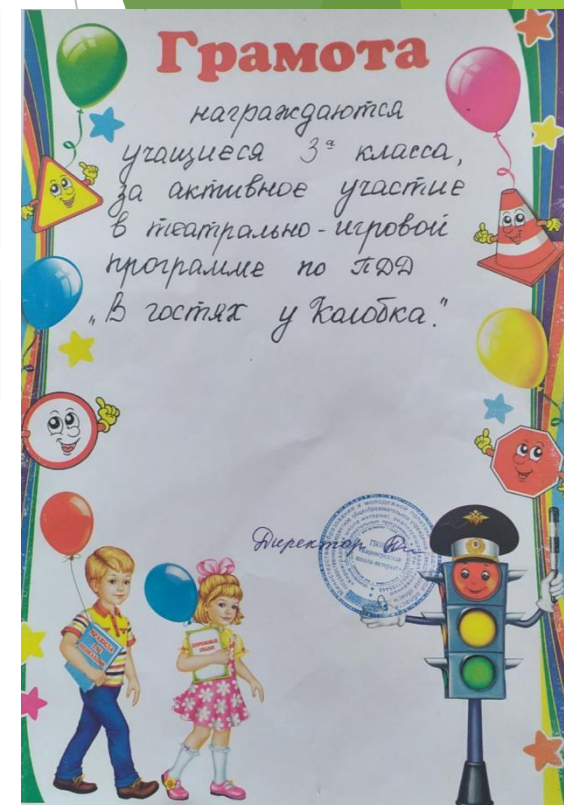 Грамота
награждаются
учащиеся 3ª класса,
за активное участие
в театрально-игровой
программе по ПДД
„В гостях у Колобка."
Директор